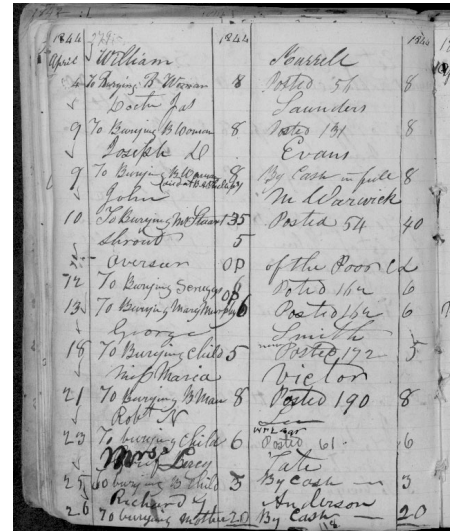 1844 1844 184
April William Murrell
4 To Burying B Woman 8 Posted 56 8
Doctr Jas Saunders
9 To Burying B Woman 8 Posted 131 8
Joseph D. Evans
9 To Burying B Woman 8 By Cash in full 8
John M Warwick
10 To Burying Mr Stuart 35 Posted 54 40
Shroud 5
Overseer OP of the Poor
12 To Burying Scruggs 6 Posted 162 6
13 To Burying Mary 6 Posted 162 6
George Smith
18 To Burying Child 5 Posted 172 5
Miss Maria Victor
21 To Burying B Man 8 Posted 190 8
Robt N Lee
23 To burying Child 6 Posted 61 6
Mrs Lucy Tate
25 To burying B Child 3 By Cash 3
Richard Anderson
26 To burying Mother 20 By Cash 20